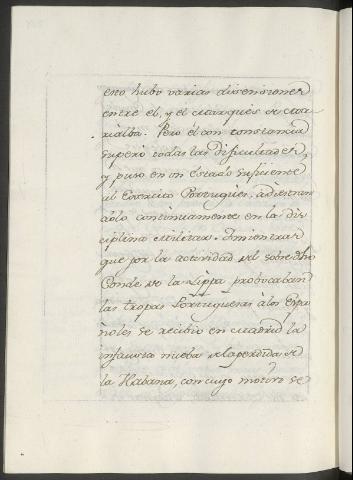 esto hubo varias disensiones
entre el, y el Marqués de Casa
rialba. Pero él con constancia
superó todas las dificultades,
y puso en un estado suficiente
al Exercito Portugués, adiestran
dolo continuamente en la dis
ciplina Militar. Imientras
que por la actividad del sobredho
Conde de la Lippa probocaban
las tropas Portuguesas á los Espa
ñoles se recibió en Madrid la
infausta nueba de la perdida de
la Habana, con cuyo motivo se